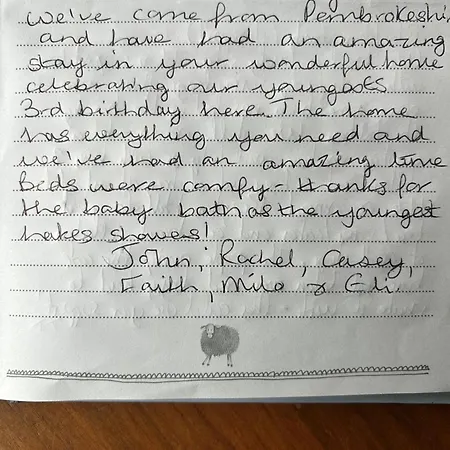 We've come from Pembrokeshi
and have had an amazing
stay in your wonderful home
celebrating our youngests
3rd birthday here. The home
has everything you need and
we've had an amazing time
Beds were comfy - thanks for
the baby bath as the youngest
hates showers!
John, Rachel, Casey,
Faith, Milo & Eli.